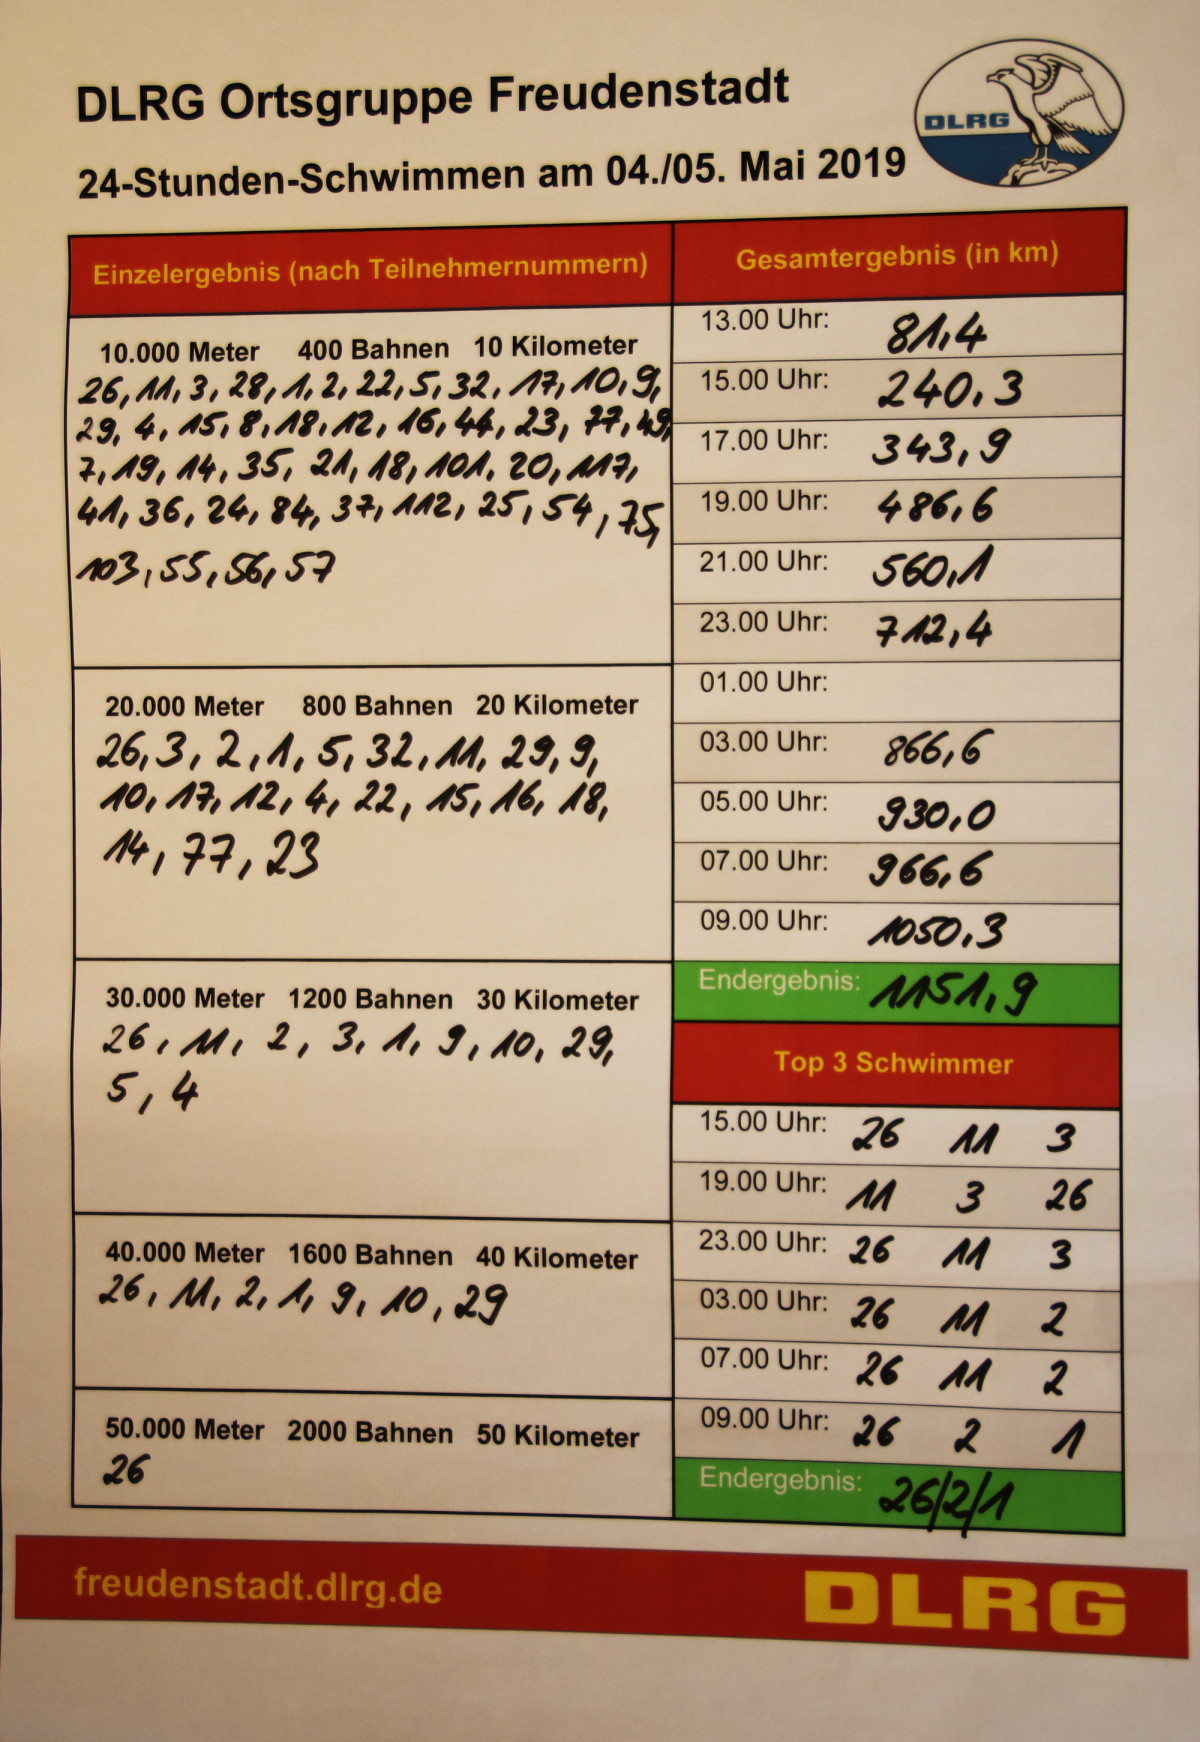 DLRG Ortsgruppe Freudenstadt
24-Stunden-Schwimmen am 04./05. Mai 2019
DLRG
Einzelergebnis (nach Teilnehmernummern)
10.000 Meter 400 Bahnen 10 Kilometer
26, 11, 3, 28, 1, 2, 22, 5, 32, 17, 10, 9,
29, 4, 15, 8, 18, 12, 16, 44, 23, 77, 49,
7, 19, 14, 35, 21, 18, 101, 20, 117,
41, 36, 24, 84, 37, 112, 25, 54, 75,
103, 55, 56, 57
20.000 Meter 800 Bahnen 20 Kilometer
26, 3, 2, 1, 5, 32, 11, 29, 9,
10, 17, 12, 4, 22, 15, 16, 18,
14, 77, 23
30.000 Meter 1200 Bahnen 30 Kilometer
26, 11, 2, 3, 1, 9, 10, 29,
5, 4
40.000 Meter 1600 Bahnen 40 Kilometer
26, 11, 2, 1, 9, 10, 29
50.000 Meter 2000 Bahnen 50 Kilometer
26
Gesamtergebnis (in km)
13.00 Uhr: 81,4
15.00 Uhr: 240,3
17.00 Uhr: 343,9
19.00 Uhr: 486,6
21.00 Uhr: 560,1
23.00 Uhr: 712,4
01.00 Uhr:
03.00 Uhr: 866,6
05.00 Uhr: 930,0
07.00 Uhr: 966,6
09.00 Uhr: 1050,3
Endergebnis: 1151,9
Top 3 Schwimmer
15.00 Uhr: 26 11 3
19.00 Uhr: 11 3 26
23.00 Uhr: 26 11 3
03.00 Uhr: 26 11 2
07.00 Uhr: 26 11 2
09.00 Uhr: 26 2 1
Endergebnis: 26/2/1
freudenstadt.dlrg.de
DLRG